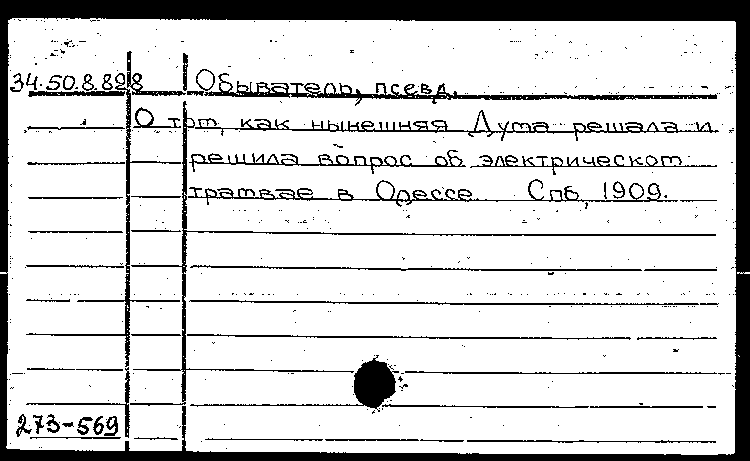 34.50.8.828 Обыватель, псевд.
О том, как нынешняя Дума решала и
решила вопрос об электрическом
трамвае в Одессе. Спб, 1909.
273-569